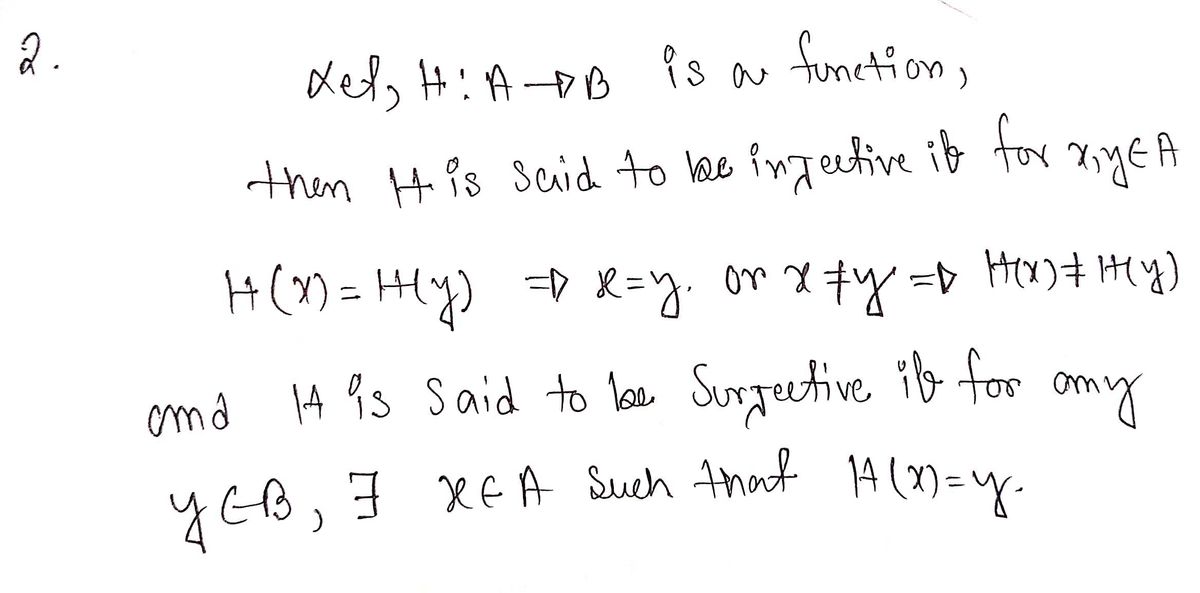 2.
Let, H : A → B is a function,
then H is said to be injective if for x, y ∈ A
H(x) = H(y) ⇒ x = y. or x ≠ y ⇒ H(x) ≠ H(y)
and H is said to be surjective if for any
y ∈ B, ∃ x ∈ A such that H(x) = y.